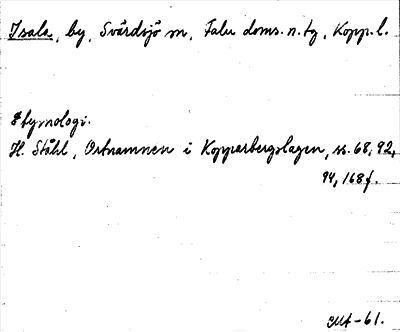 Isala, by, Svärdsjö sn, Falu doms. n. tg, Kopp. l.
Etymologi.
H. Ståhl, Ortnamnen i Kopparbergslagen, ss. 68, 92,
94, 168 f.
-61.